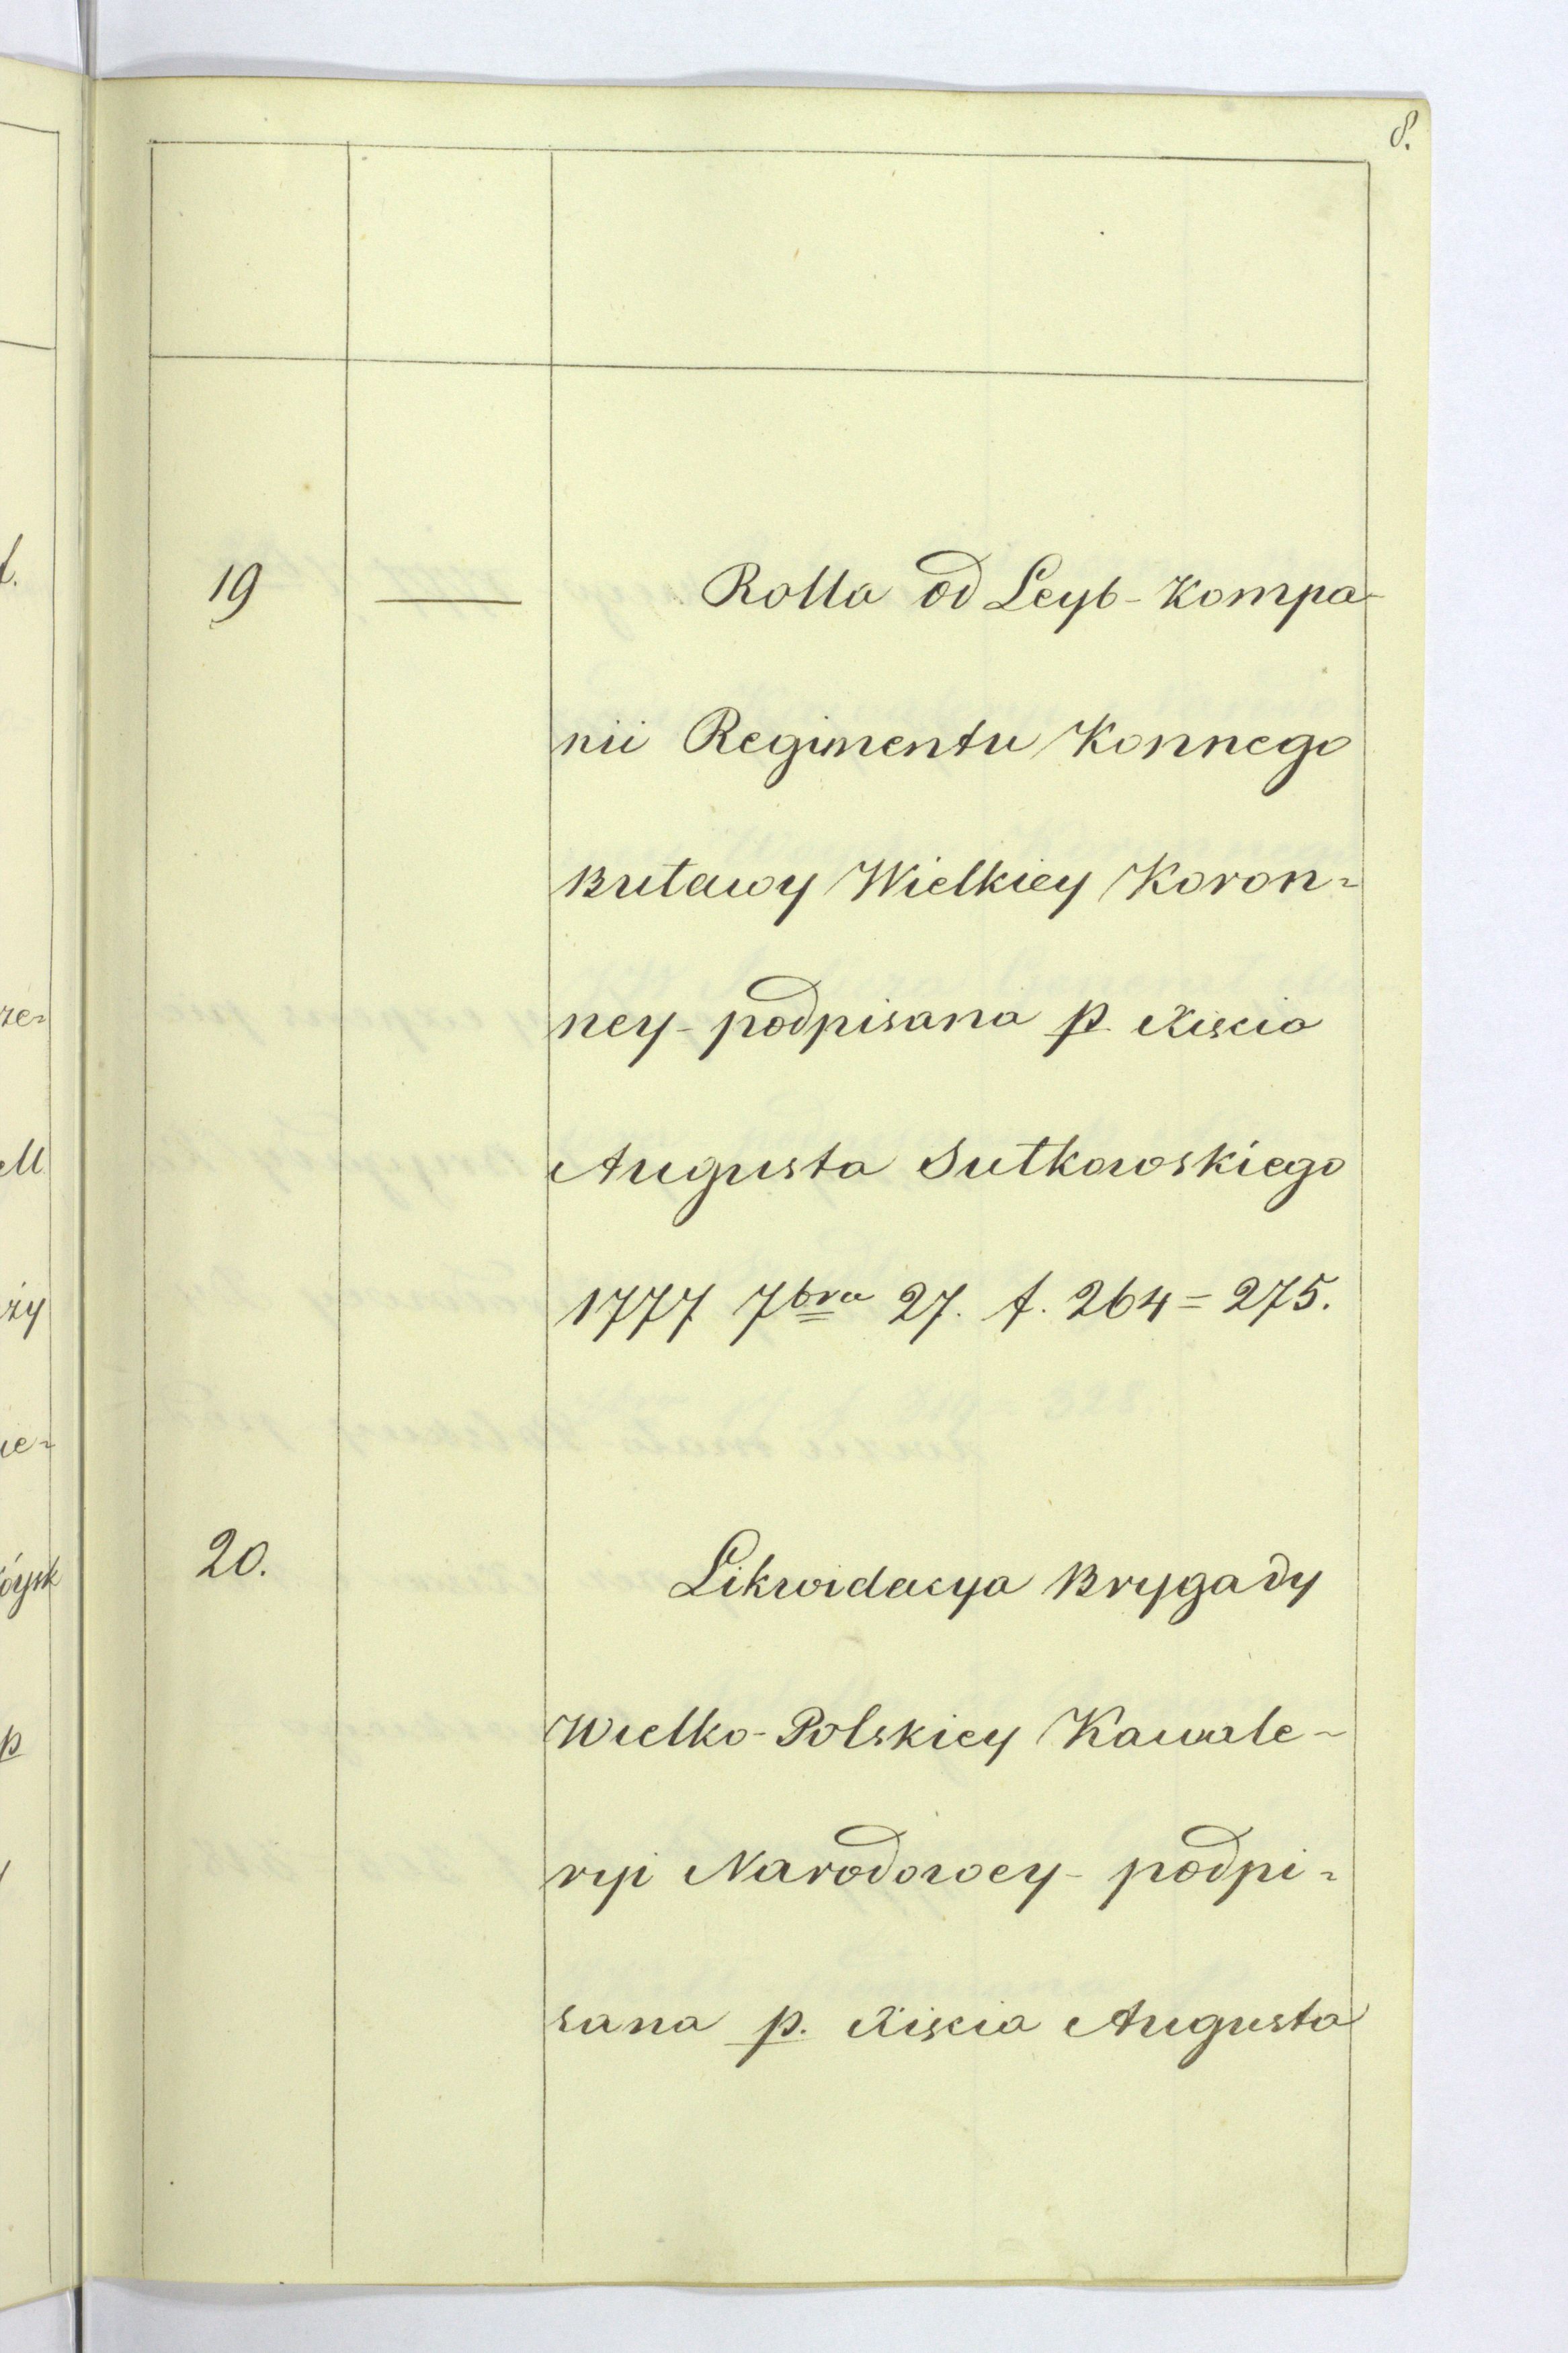 8.
19 — Rolla od Leyb-Kompa-
nii Regimentu Konnego
Buławy Wielkiey Koron=
ney - podpisana p. Xiscia
Augusta Sułkowskiego
1777 7bra 27. f. 264=275.
20. Likwidacya Brygady
Wielko-Polskiey Kawale-
ryi Narodowey - podpi=
sana p. Xiscia Augusta